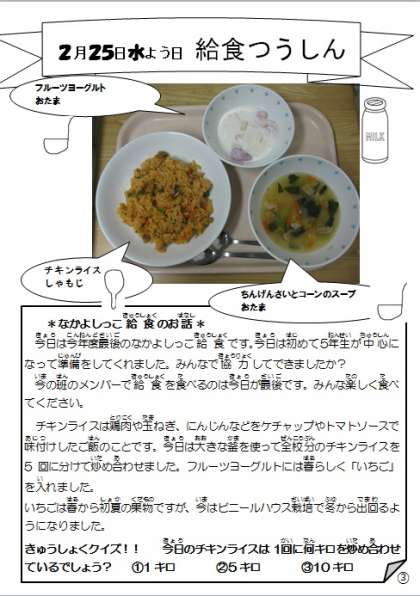 2月25日水よう日 給食つうしん
フルーツヨーグルト
おたま
MILK
チキンライス
しゃもじ
ちんげんさいとコーンのスープ
おたま
＊なかよしっこ給食のお話＊
今日は今年度最後のなかよしっこ給食です。今日は初めて5年生が中心に
なって準備をしてくれました。みんなで協力してできましたか？
今の班のメンバーで給食を食べるのは今日が最後です。みんな楽しく食べ
てください。
チキンライスは鶏肉や玉ねぎ、にんじんなどをケチャップやトマトソースで
味付けしたご飯のことです。今日は大きな釜を使って全校分のチキンライスを
5回に分けて炒め合わせました。フルーツヨーグルトには春らしく「いちご」
を入れました。
いちごは春から初夏の果物ですが、今はビニールハウス栽培で冬から出回るよ
うになりました。
きゅうしょくクイズ！！ 今日のチキンライスは1回に何キロを炒め合わせ
ているでしょう？ ①1キロ ②5キロ ③10キロ
③